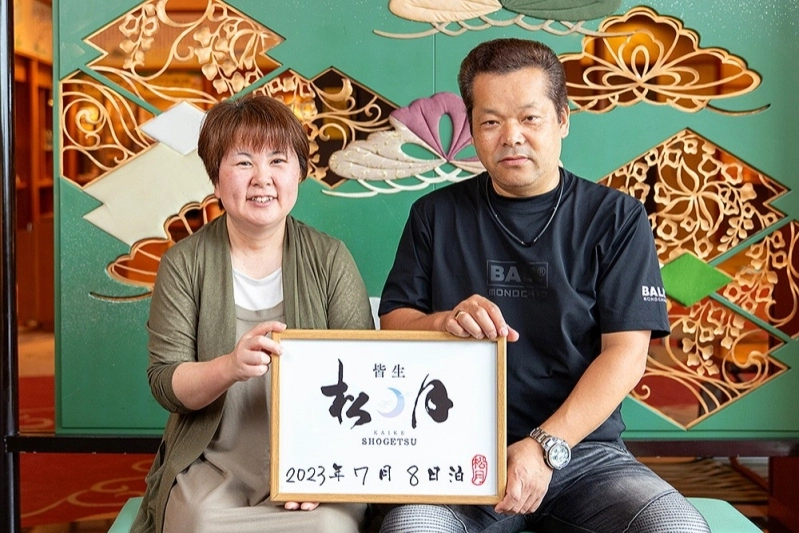 皆生
松月
KAIKE
SHOGETSU
2023年7月8日泊
松月
BAL
MONOCH
BAL